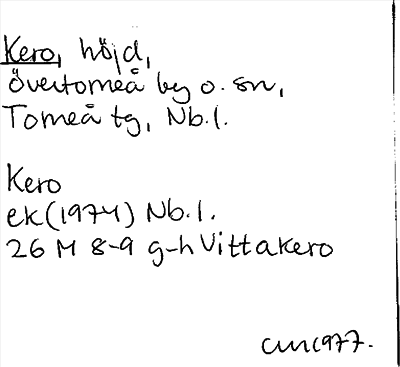 Kero, höjd,
Övertorneå by o. sn,
Torneå tg, Nb.l.
Kero
ek(1974) Nb.l.
26 M 8-9 g-h Vittakero
CM 1977.